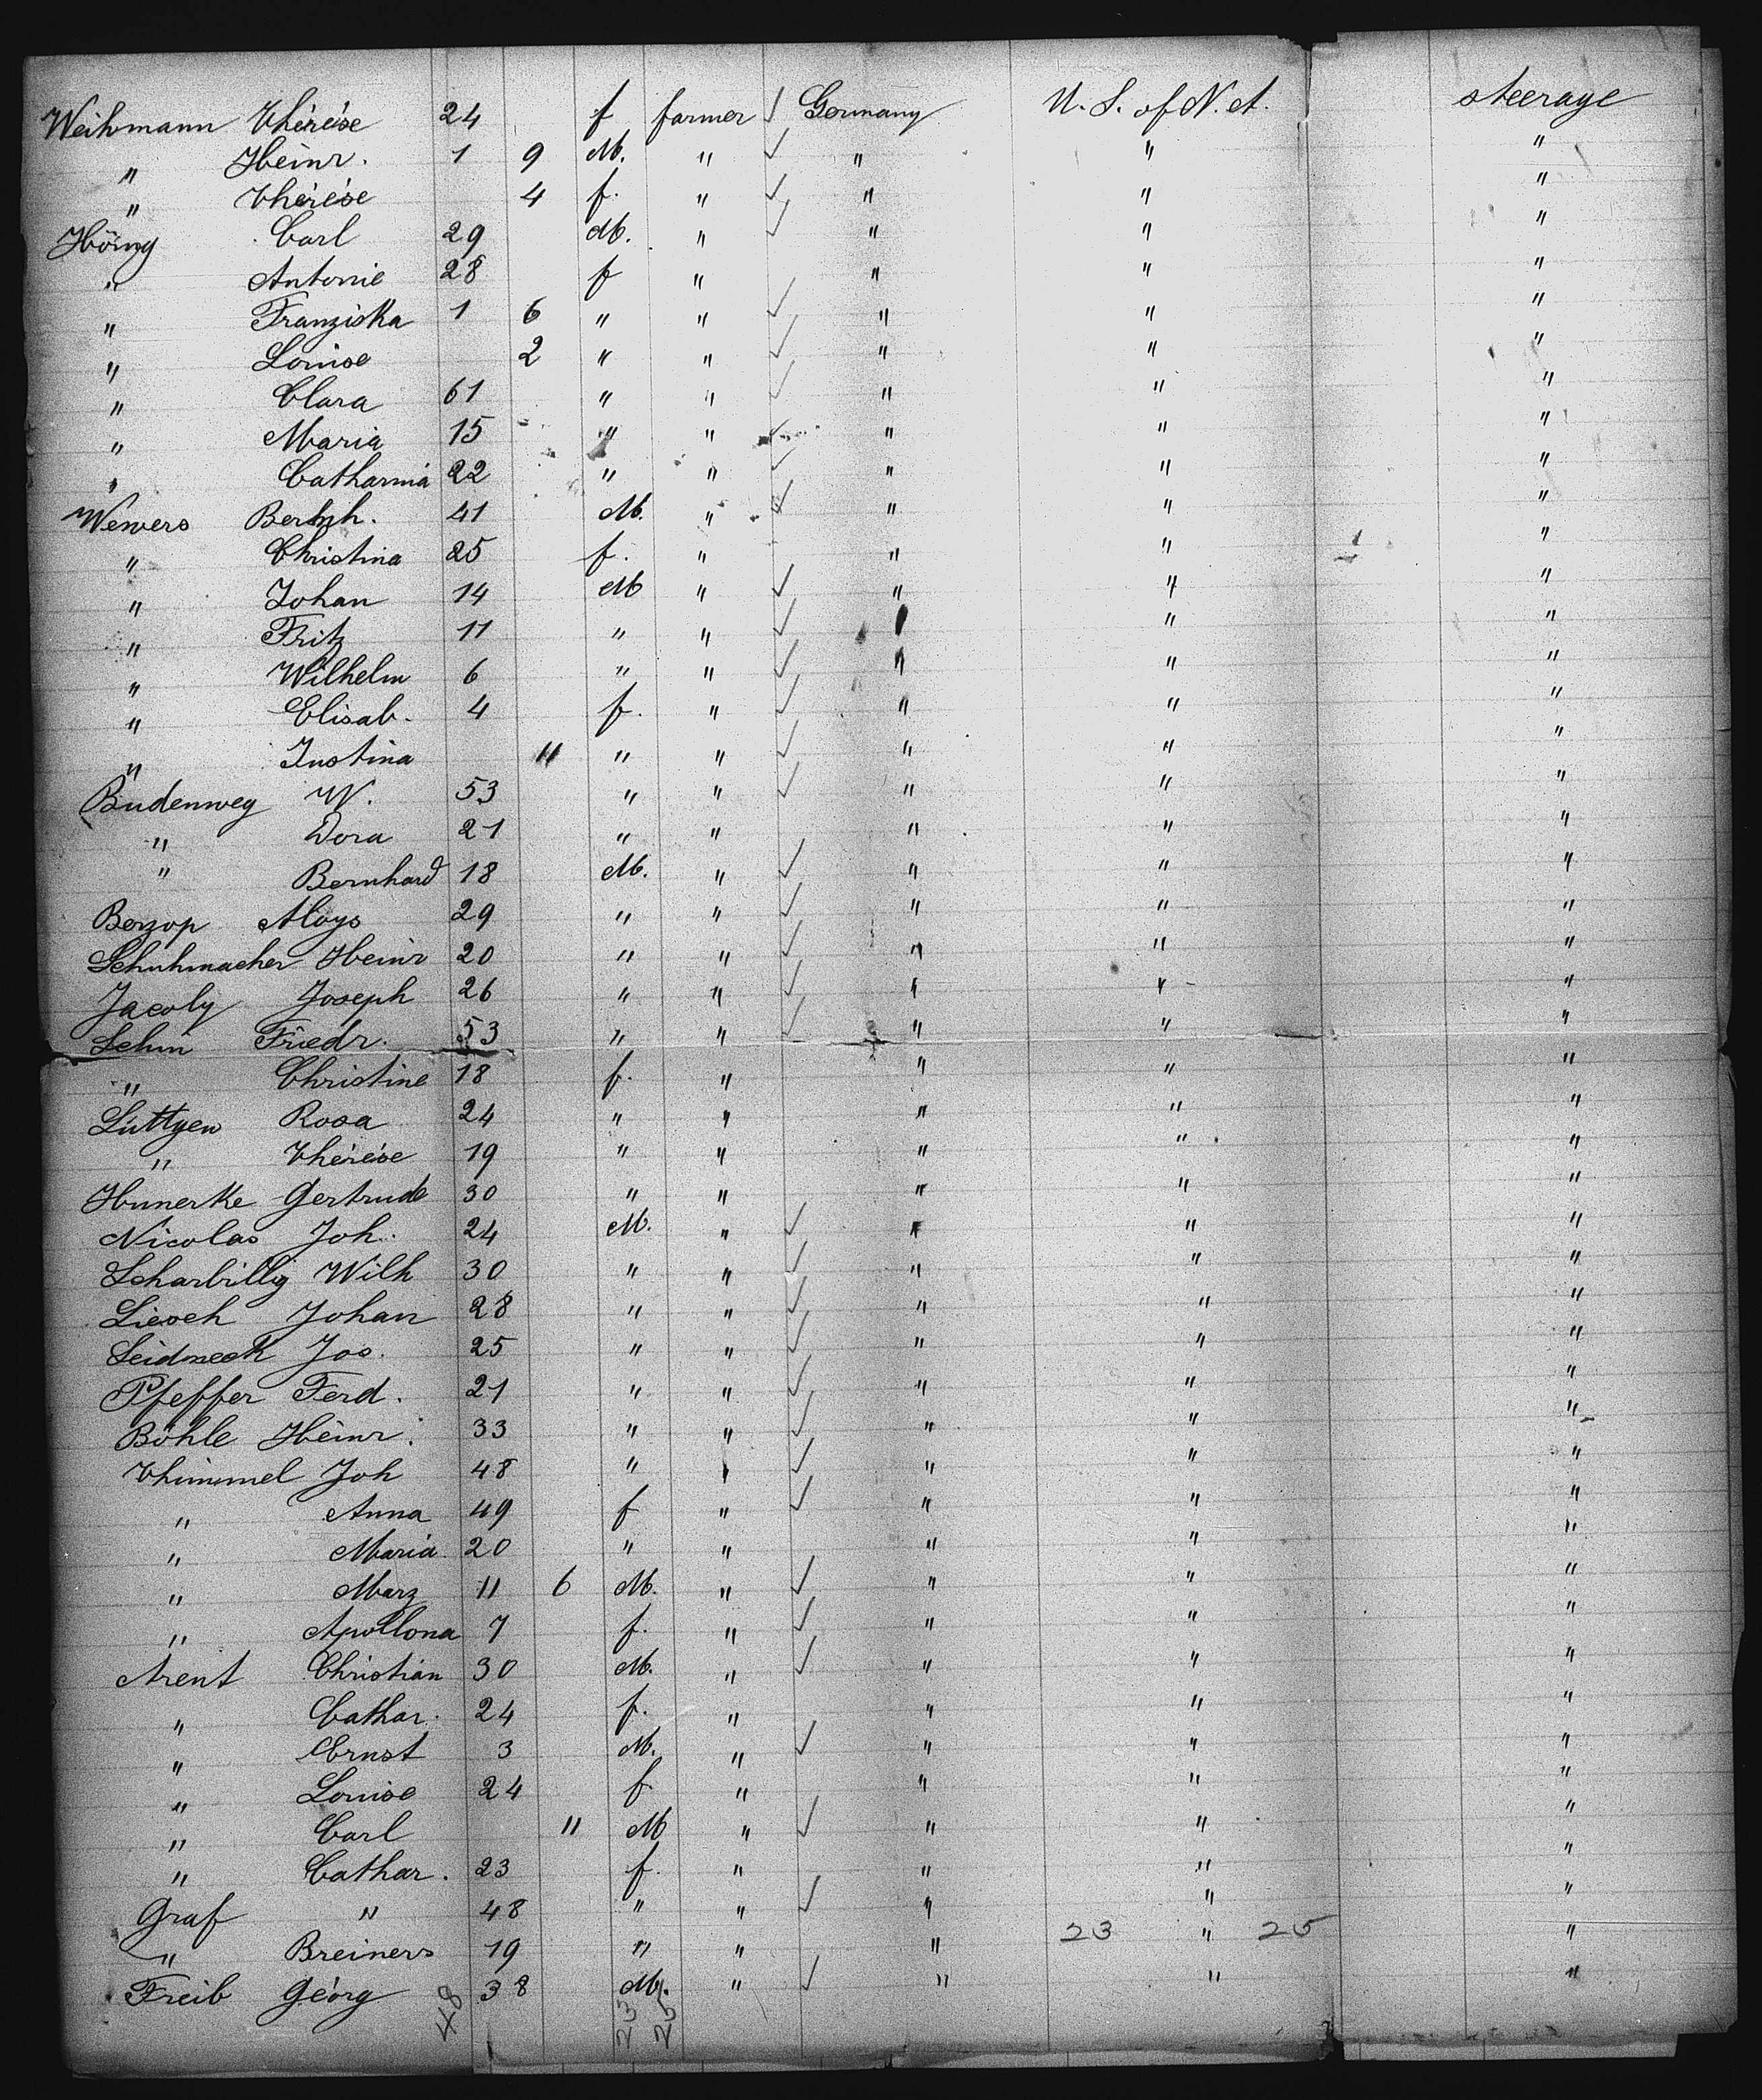 Weihmann Thérèse 24 f farmer ✓ Germany U. S. of N. A. steerage
" Heinr. 1 9 M. " ✓ " " "
" Thérèse 4 f. " ✓ " " "
Höing Carl 29 M. " ✓ " " "
" Antonie 28 f " " " "
" Franziska 1 6 " " ✓ " " "
" Louise 2 " " ✓ " " "
" Clara 61 " " ✓ " " "
" Maria 15 " " ✓ " " "
" Catharina 22 " " ✓ " " "
Wewers Bernh. 41 M. " ✓ " " "
" Christina 25 f. " " " "
" Johan 14 M " ✓ " " "
" Fritz 11 " " ✓ " " "
" Wilhelm 6 " " ✓ " " "
" Elisab. 4 f. " ✓ " " "
" Justina 11 " " ✓ " " "
Budenweg W. 53 " " ✓ " " "
" Dora 21 " " " " "
" Bernhard 18 M. " ✓ " " "
Berzop Aloys 29 " " ✓ " " "
Schuhmacher Heinr 20 " " ✓ " " "
Jacoby Joseph 26 " " ✓ " " "
Lehm Friedr. 53 " " ✓ " " "
" Christine 18 f. " " " "
Lüttgen Rosa 24 " " " " "
" Thérèse 19 " " " " "
Hunerke Gertrude 30 " " " " "
Nicolas Joh. 24 M. " ✓ " " "
Scharbillig Wilh 30 " " ✓ " " "
Liesch Johan 28 " " ✓ " " "
Jos. 25 " " ✓ " " "
Pfeffer Ferd. 21 " " ✓ " " "
Böhle Heinr. 33 " " ✓ " " "
Thimmel Joh 48 " " ✓ " " "
" Anna 49 f " ✓ " " "
" Maria 20 " " " " "
" Marz 11 6 M. " ✓ " " "
" Apollona 7 f. " ✓ " " "
Arent Christian 30 M. " ✓ " " "
" Cathar. 24 f. " " " "
" Ernst 3 M. " ✓ " " "
" Louise 24 f. " " " "
" Carl 11 M " ✓ " " "
" Cathar. 23 f. " " " "
Graf " 48 " " ✓ " " "
" Breiners 19 " " " 23 " 25 "
Freib Géorg 38 M. " ✓ " " "
48 23 25